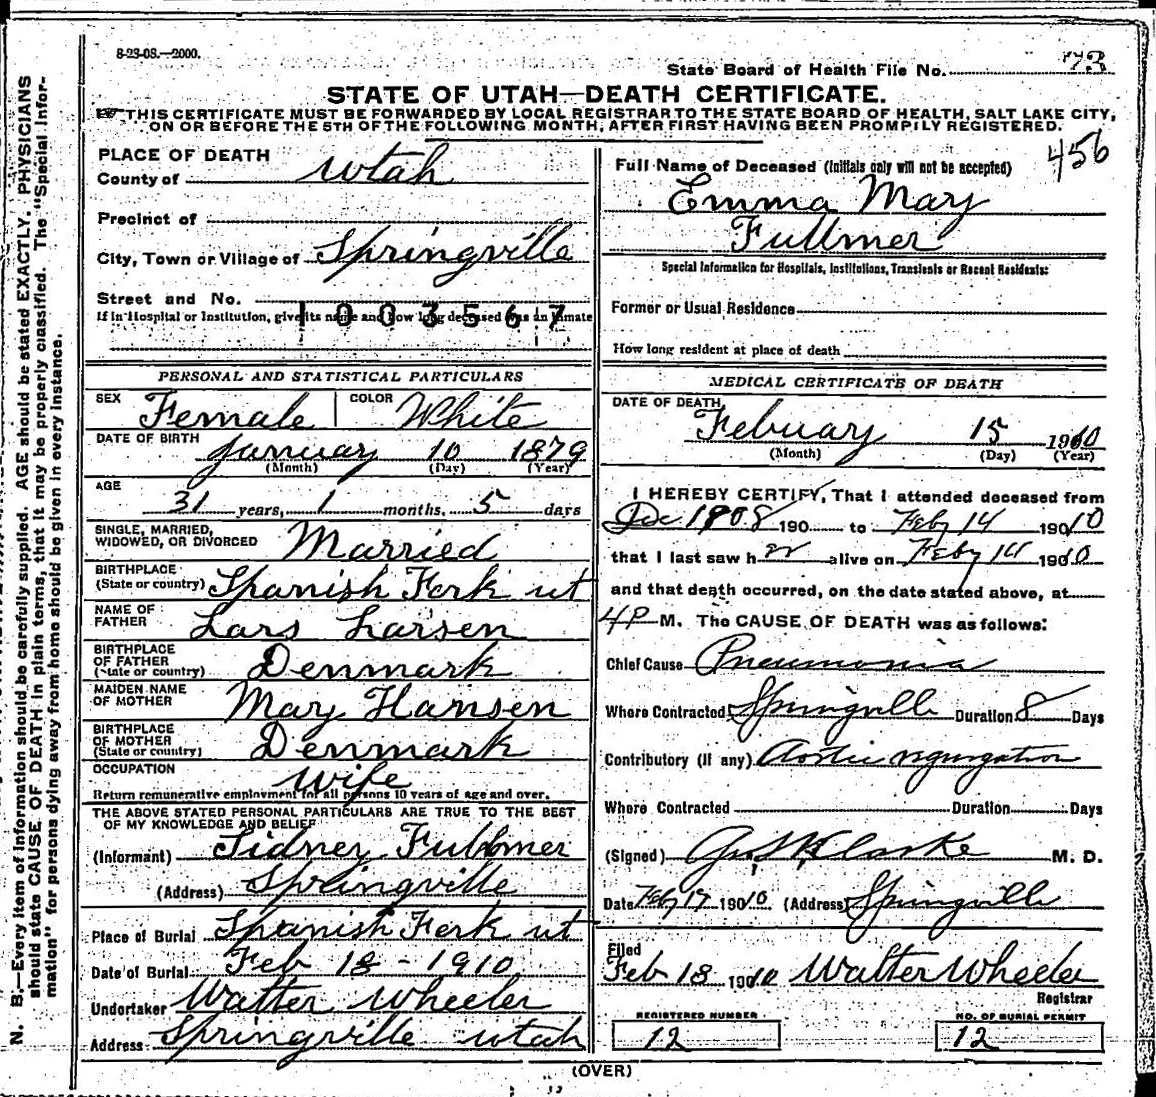 8-23-08.—2000.
State Board of Health File No. 73
STATE OF UTAH—DEATH CERTIFICATE.
THIS CERTIFICATE MUST BE FORWARDED BY LOCAL REGISTRAR TO THE STATE BOARD OF HEALTH, SALT LAKE CITY,
ON OR BEFORE THE 5TH OF THE FOLLOWING MONTH, AFTER FIRST HAVING BEEN PROMPTLY REGISTERED.
456
PLACE OF DEATH
County of Utah
Precinct of
City, Town or Village of Springville
Street and No.
1003567
If in Hospital or Institution, give its name and how long deceased was an inmate
Full Name of Deceased (Initials only will not be accepted)
Emma Mary
Fullmer
Special Information for Hospitals, Institutions, Transients or Recent Residents:
Former or Usual Residence
How long resident at place of death
PERSONAL AND STATISTICAL PARTICULARS
SEX Female COLOR White
DATE OF BIRTH January 10 1879
(Month) (Day) (Year)
AGE
31 years, 1 months, 5 days
SINGLE, MARRIED,
WIDOWED, OR DIVORCED Married
BIRTHPLACE
(State or country) Spanish Fork ut
NAME OF
FATHER Lars Larsen
BIRTHPLACE
OF FATHER
(State or country) Denmark
MAIDEN NAME
OF MOTHER Mary Hansen
BIRTHPLACE
OF MOTHER
(State or country) Denmark
OCCUPATION Wife
Return remunerative employment for all persons 10 years of age and over.
THE ABOVE STATED PERSONAL PARTICULARS ARE TRUE TO THE BEST
OF MY KNOWLEDGE AND BELIEF
(Informant) Sidney Fullmer
(Address) Springville
Place of Burial Spanish Fork ut
Date of Burial Feb 18 - 1910
Undertaker Walter Wheeler
Address Springville utah
MEDICAL CERTIFICATE OF DEATH
DATE OF DEATH
Febuary 15 1910
(Month) (Day) (Year)
I HEREBY CERTIFY, That I attended deceased from
Dec 1908 190 to Feby 14 1910
that I last saw her alive on Feby 14 1910
and that death occurred, on the date stated above, at
4 P M. The CAUSE OF DEATH was as follows:
Chief Cause Pneumonia
Where Contracted Springville Duration 8 Days
Contributory (if any) Aortic regurgitation
Where Contracted Duration Days
(Signed) Geo S Clarke M. D.
Date Feby 17 1910. (Address) Springville
Filed
Feb 18 1910 Walter Wheeler
Registrar
REGISTERED NUMBER
12
NO. OF BURIAL PERMIT
12
(OVER)
N. B.—Every item of information should be carefully supplied. AGE should be stated EXACTLY. PHYSICIANS
should state CAUSE OF DEATH in plain terms, that it may be properly classified. The "Special Infor-
mation" for persons dying away from home should be given in every instance.